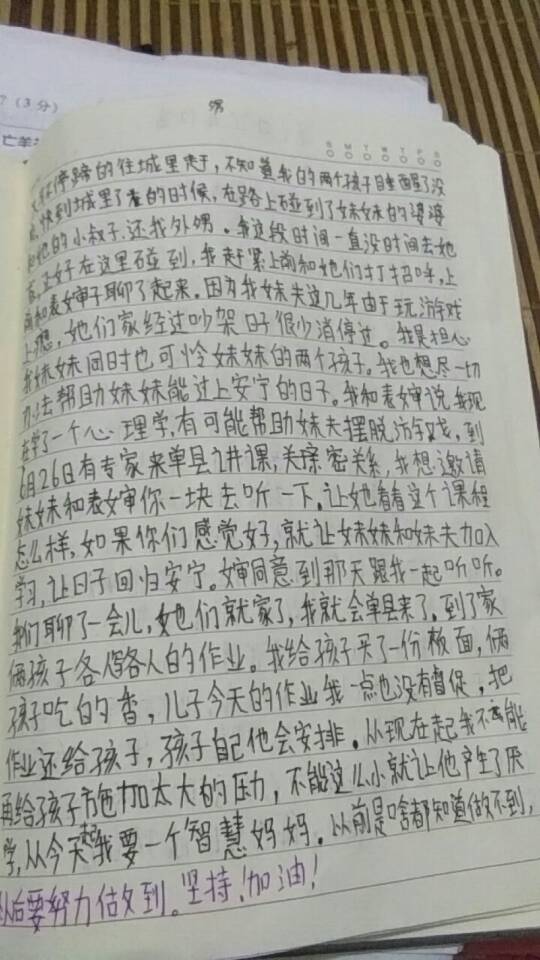 ?(3分)
亡羊
甥
S M T W T F S
不停蹄的往城里走,不知道我的两个孩子自里醒了没
快到城里了查的时候,在路上碰到了妹妹的婆婆
和她的小叔子.还我外甥。每这段时间一直没时间去她
家,正好在这里碰到,我赶紧上前和她们打招呼,上
前和表婶子聊了起来.因为我妹夫这几年由于玩游戏
上瘾,她们家经过吵架日子很少消停过。我是担心
我妹妹同时也可怜妹妹的两个孩子。我也想尽一切
办法去帮助妹妹能过上安宁的日子。我和表婶说我现
在学了一个心理学,有可能帮助妹夫摆脱游戏,到
6月26日有专家来单县讲课,关亲密关系,我想邀请
妹妹和表婶你一块去听一下.让她看看这个课程
怎么样,如果你们感觉好,就让妹妹和妹夫加入
学习,让日子回归安宁。婶同意到那天跟我一起听听。
我们聊了一会儿,她们就家了,我就会单县来了.到了家
俩孩子各人的作业。我给孩子买了一份板面,俩
孩子吃的香,儿子今天的作业我一点也没有督促,把
作业还给孩子,孩子自己他会安排.从现在起我不能
再给孩子施加太大的压力,不能这么小就让他产生了厌
学,从今天起我要一个智慧妈妈.以前是啥都知道做不到,
以后要努力做到。坚持!加油!